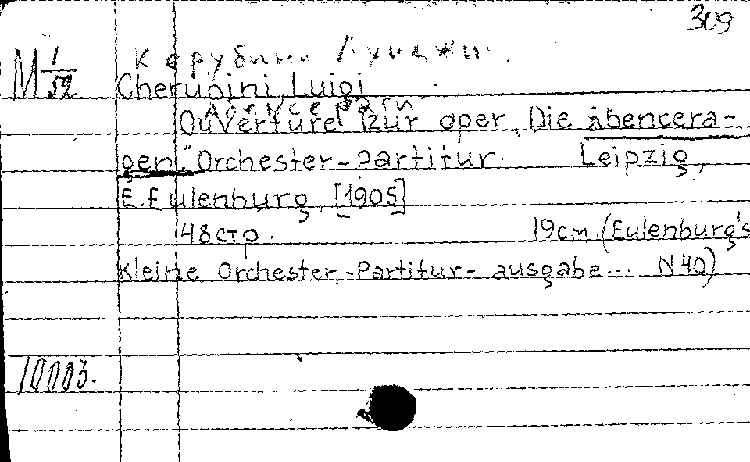 309
М 1/52 Керубини Луиджи.
Cherubini Luigi
Абенсераги
Ouverture zur oper „Die Abencera-
gen." Orchester-Partitur. Leipzig,
E. Eulenburg, [1905]
48 стр. 19 см. (Eulenburg's
Kleine Orchester-Partitur-ausgabe... N 40)
10003.